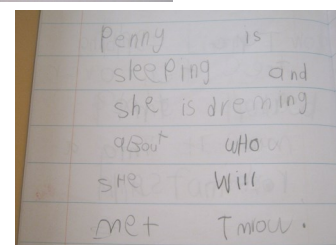 Penny is
sleeping and
she is dreming
about who
SHe Will
met Tmrow.